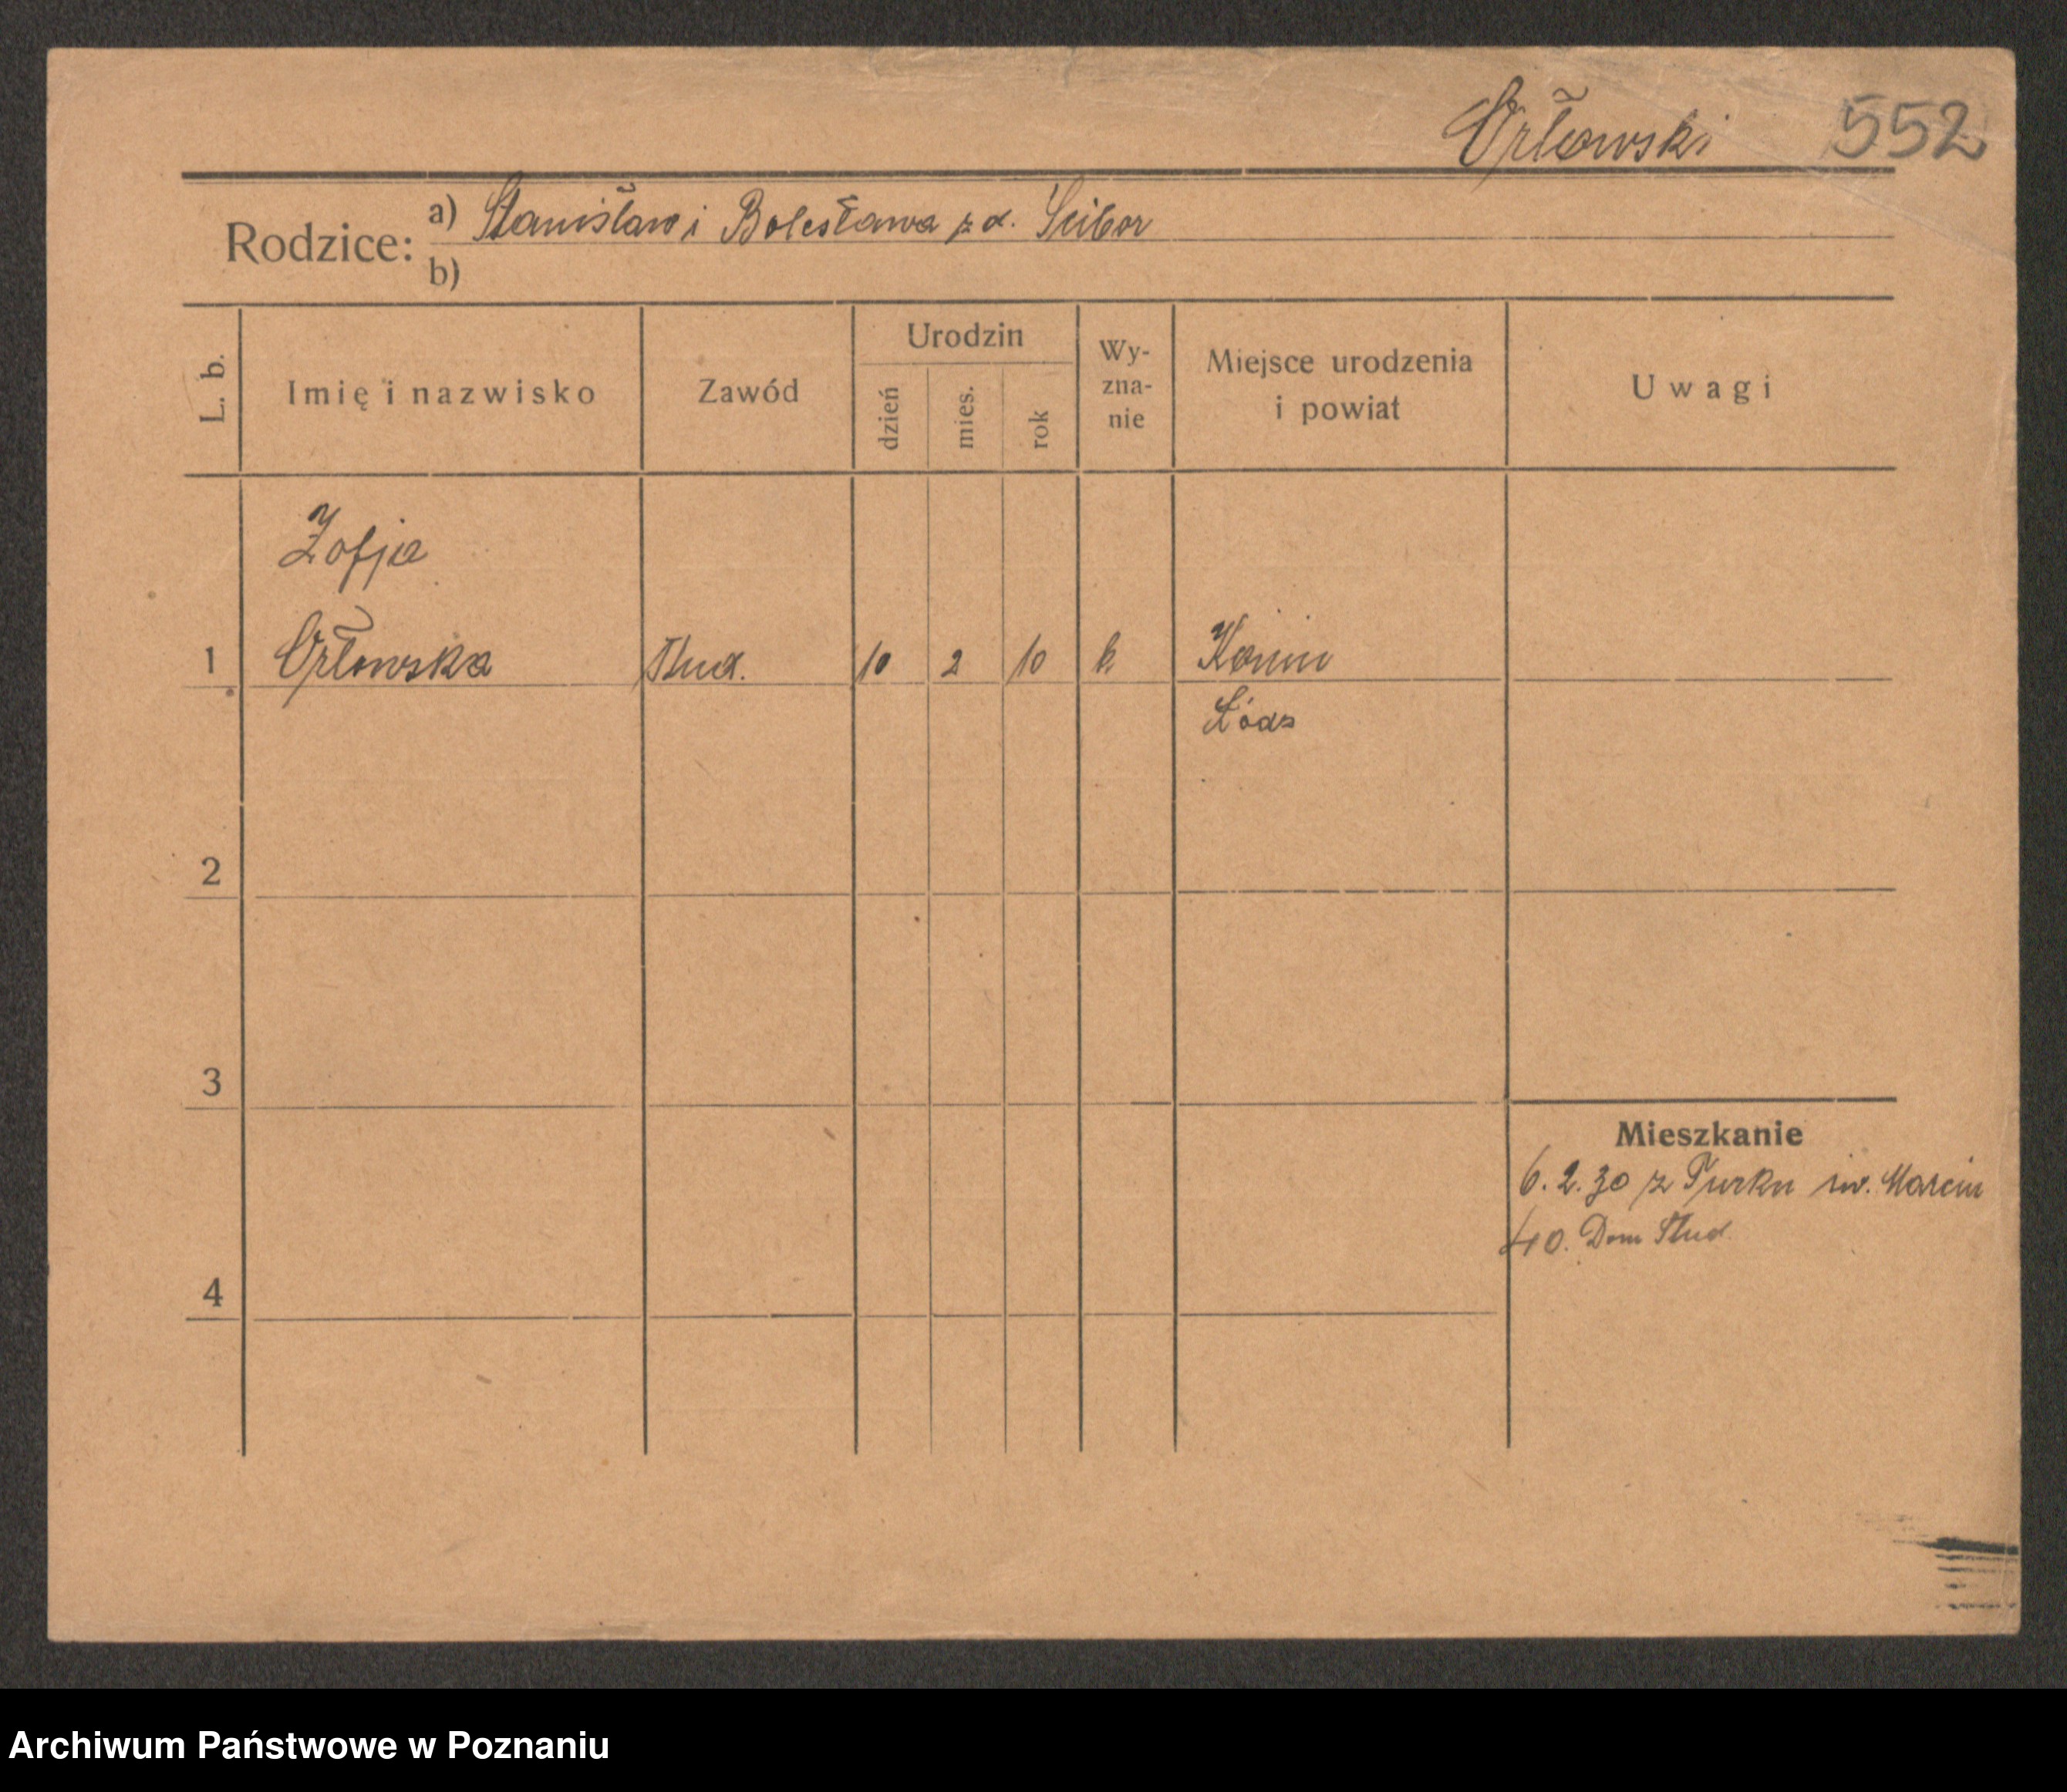 Orłowski 552
Rodzice: a) Stanisław i Bolesława z d. Scibor
b)
L. b.
Imię i nazwisko
Zawód
Urodzin
dzień
mies.
rok
Wy-
zna-
nie
Miejsce urodzenia
i powiat
Uwagi
Zofja
1 Orłowska Stud. 10 2 10 k. Konin
Łódz
2
3
Mieszkanie
6.2.30 z Turku św. Marcin
40. Dom Stud.
4
Archiwum Państwowe w Poznaniu